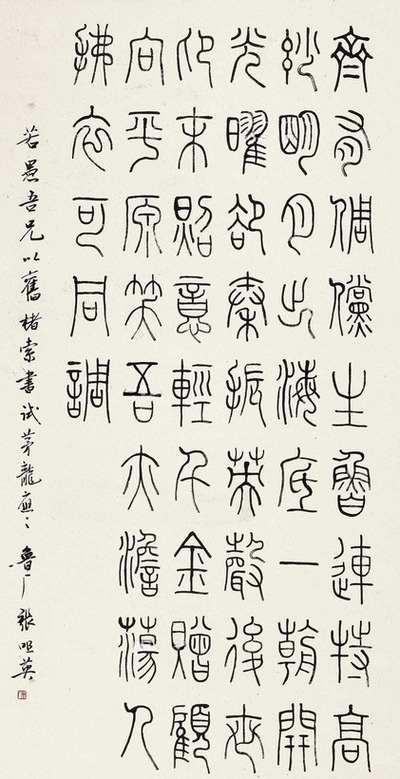 齊有倜儻生魯連特高
妙明月出海底一朝開
光曜卻秦振英聲後世
仰末照意輕千金贈顧
向平原笑吾亦澹蕩人
拂衣可同調
若愚吾兄以舊楮索書試茅龍應之 魯厂張英